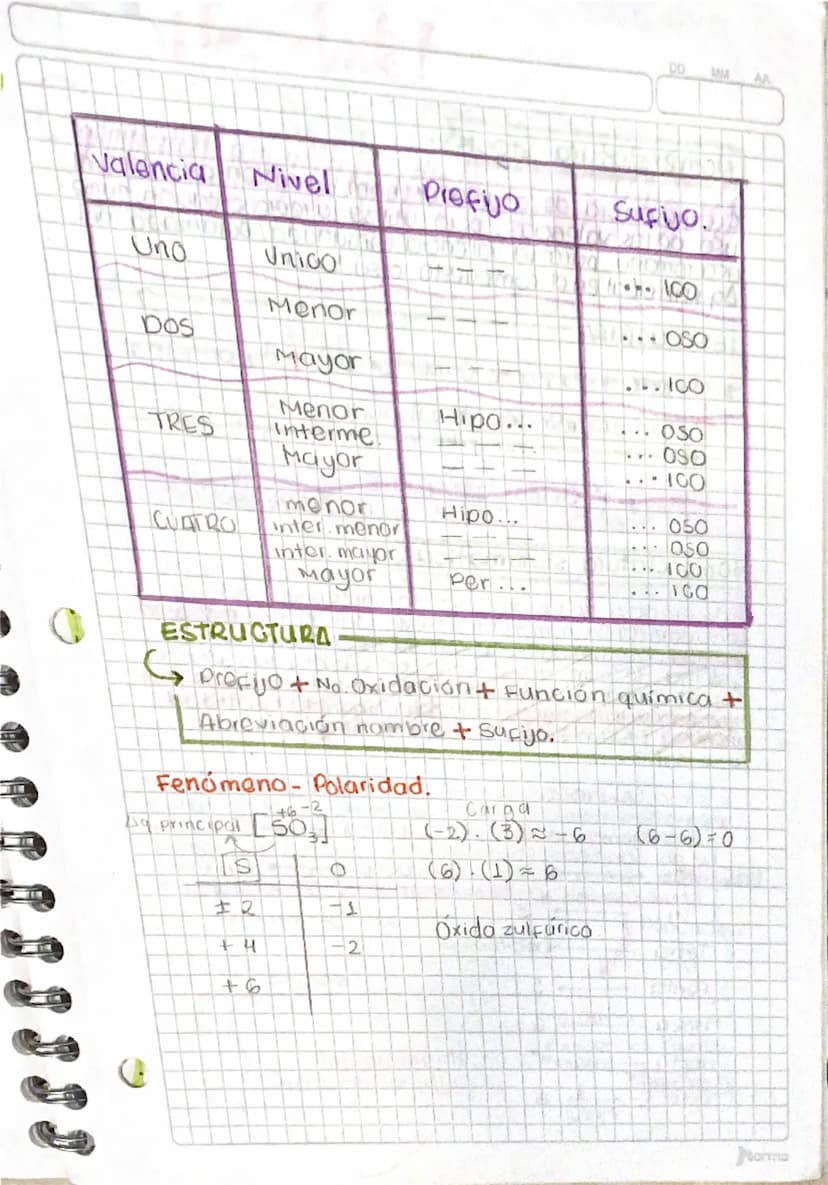 DD MM AA
Valencia Nivel Prefijo Sufijo.
Uno Unico --- ... ICO
DOS Menor --- ... OSO
Mayor --- ... ICO
TRES Menor Hipo... ... OSO
interme. --- ... OSO
Mayor --- ... ICO
CUATRO menor Hipo... ... OSO
inter. menor --- ... OSO
inter. mayor --- ... ICO
Mayor Per... ... ICO
ESTRUCTURA
Prefijo + No. Oxidación + Función química +
Abreviación nombre + Sufijo.
Fenómeno - Polaridad.
+6 -2 Carga
principal [SO₃] (-2) . (3) ≈ -6 (6-6)=0
S O (6) . (1) ≈ 6
±2 -1
+4 -2 Óxido zulfúrico
+6
Norma